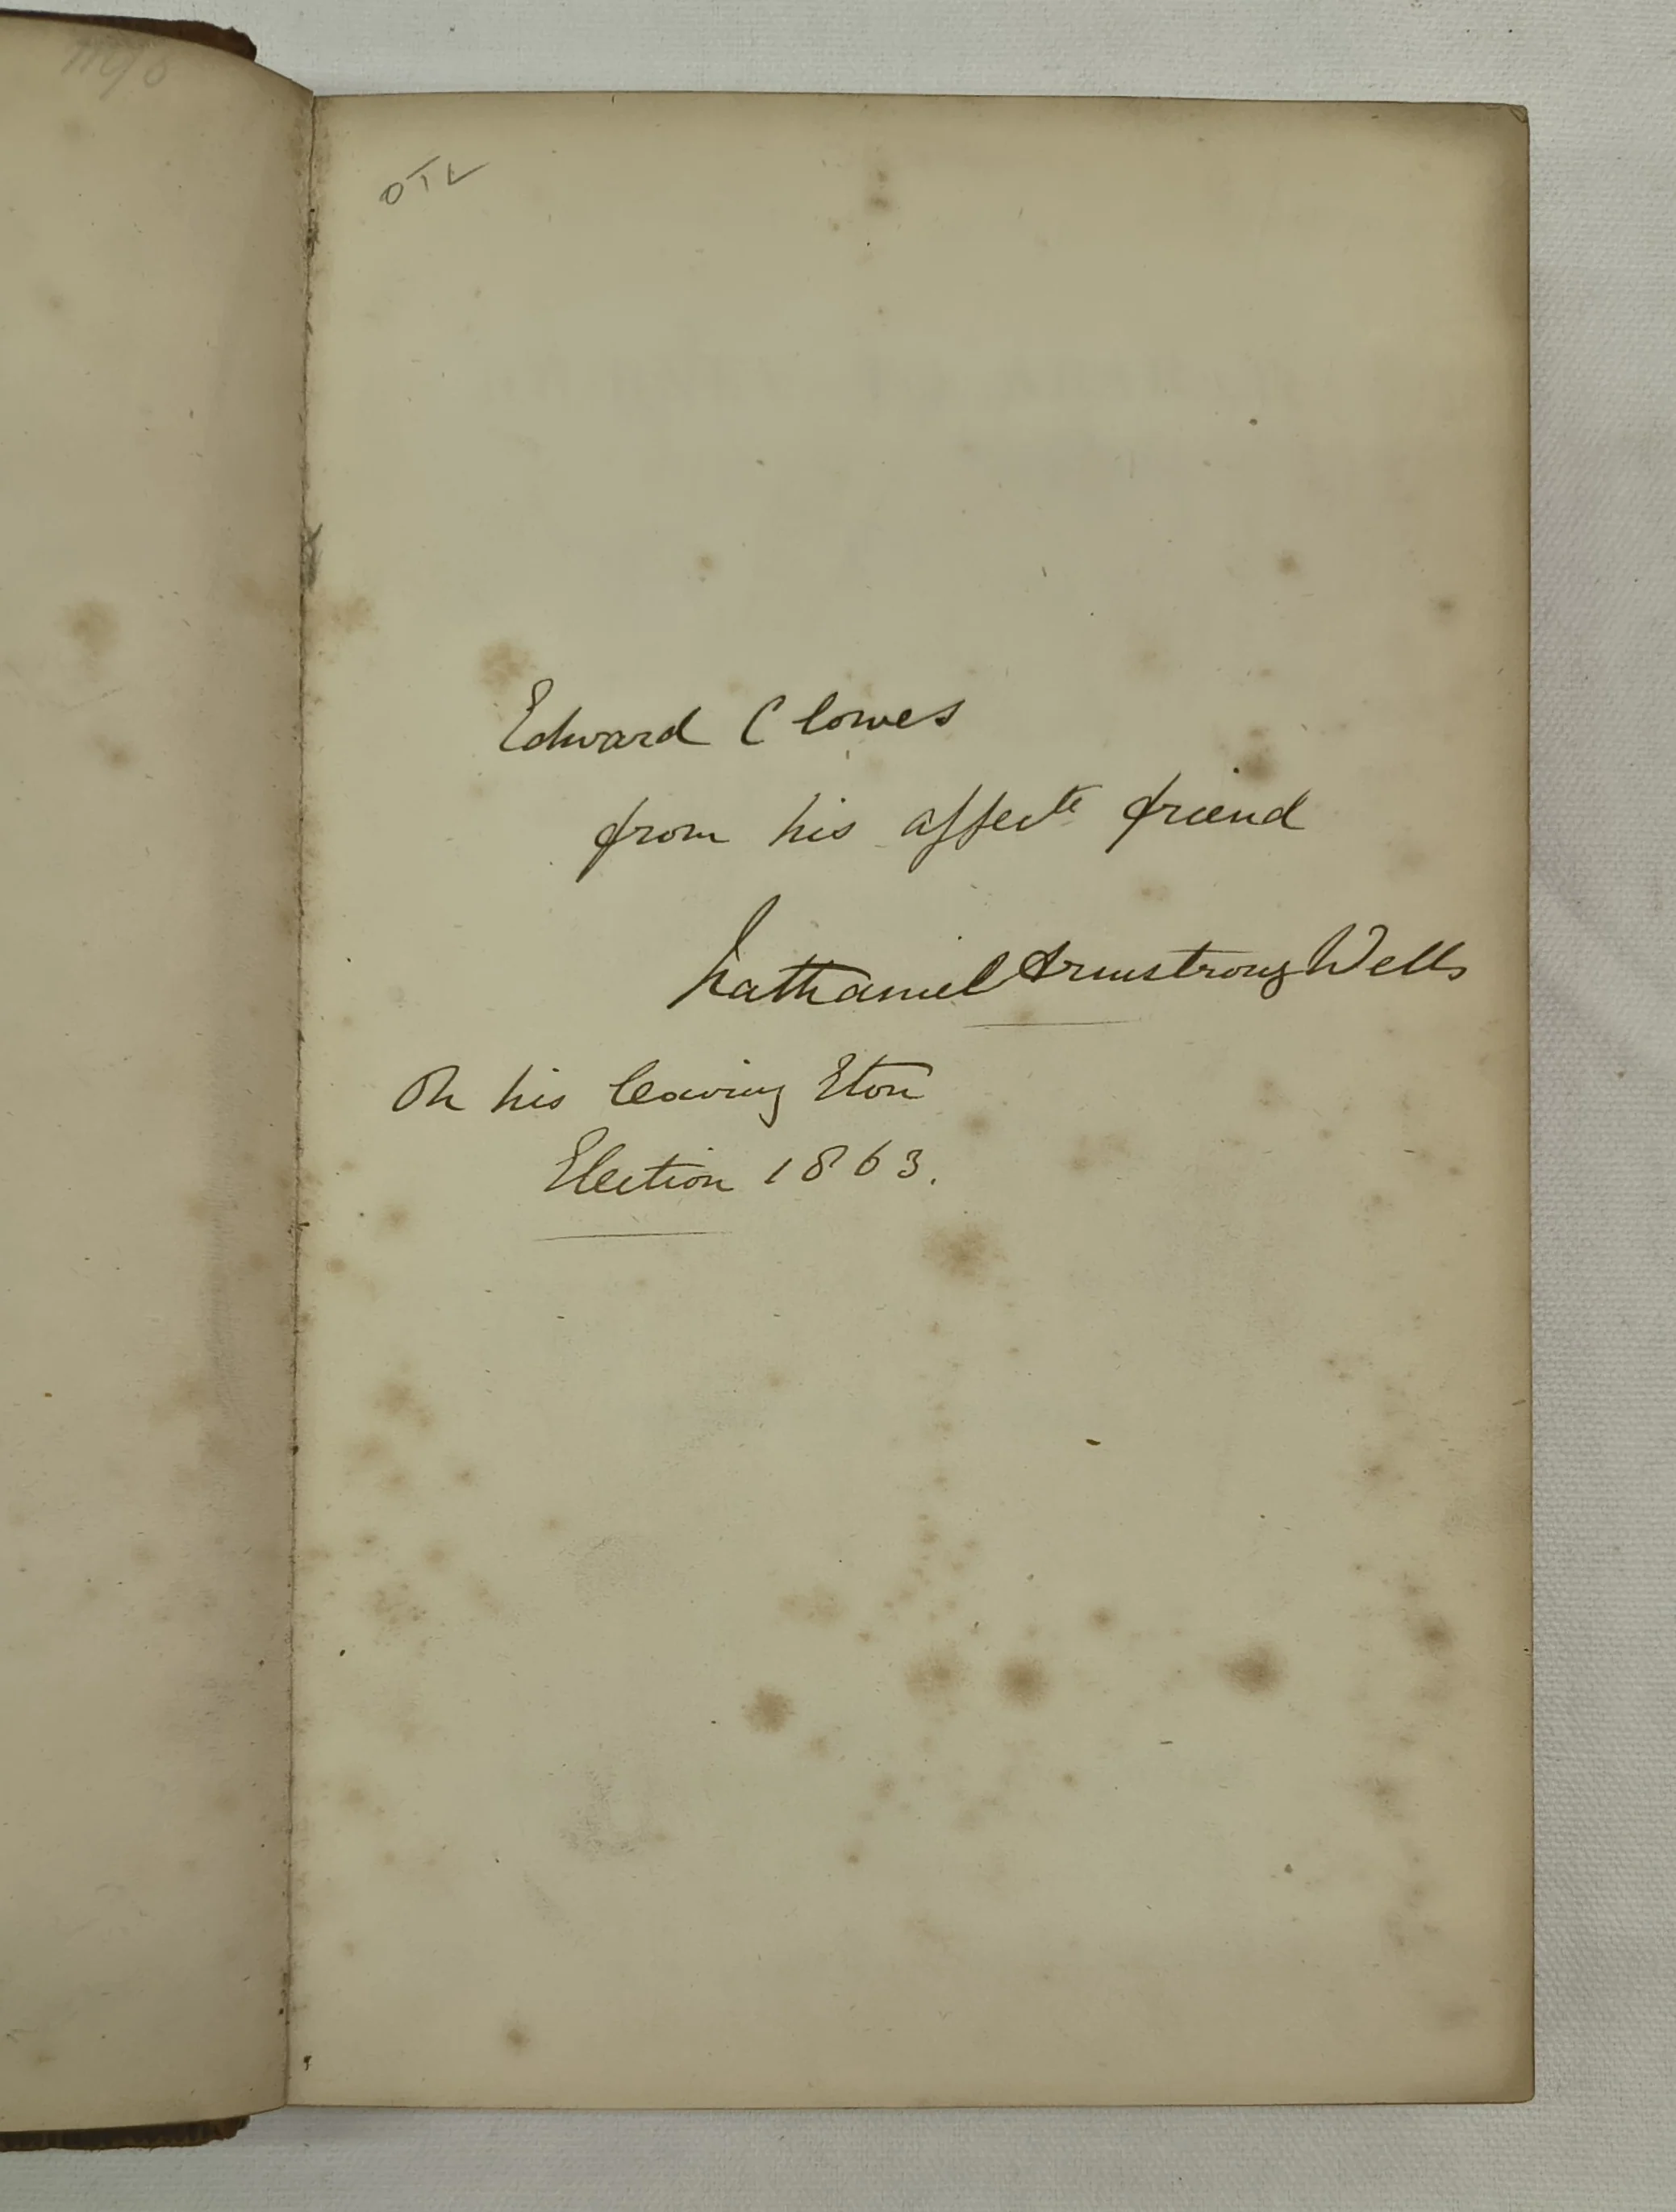 OTL
Edward Clowes
from his affecte friend
Nathaniel Armstrong Wells
On his leaving Eton
Election 1863.